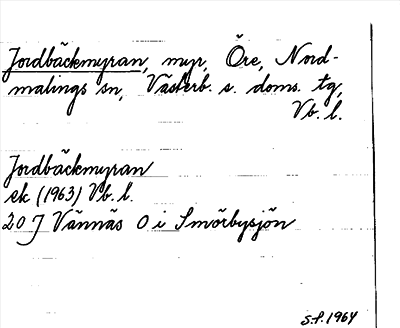 Jordbäckmyran, myr, Öre, Nord-
malings sn, Västerb. s. doms. tg,
Vb. l.
Jordbäckmyran
ek (1963) Vb. l.
20 J Vännäs O i Smörbysjön
S.F. 1964